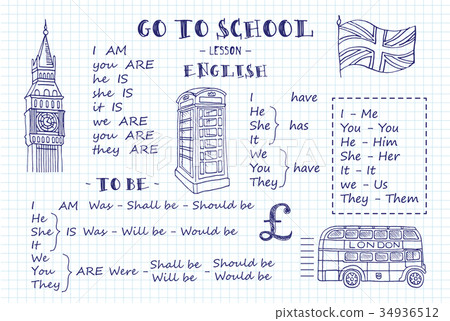 GO TO SCHOOL
- LESSON -
ENGLISH
I AM
you ARE
he IS
she IS
it IS
we ARE
you ARE
they ARE
I have
He
She has
It
We
You have
They
I - Me
You - You
He - Him
She - Her
It - It
we - Us
They - Them
- TO BE -
I AM Was - Shall be - Should be
He
She IS Was - Will be - Would be
It
We
You ARE Were - Shall be - Should be
They Will be - Would be
£
LONDON
34936512